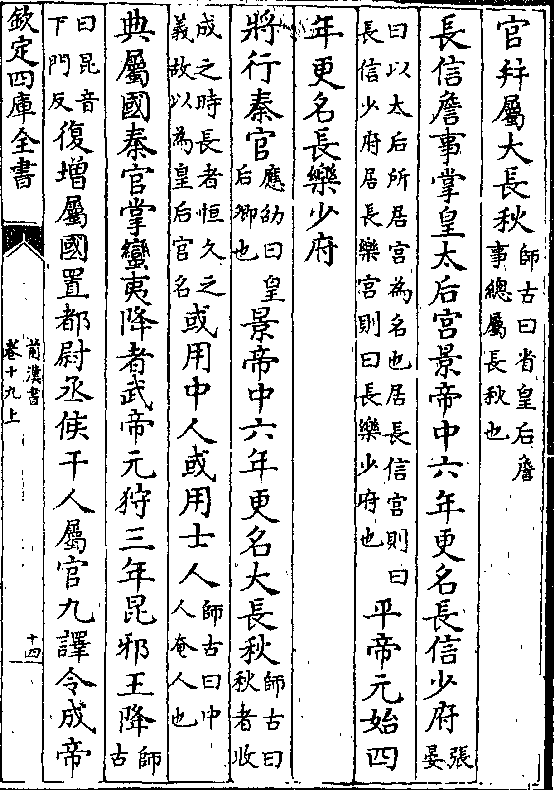 官并屬大長秋師古曰省皇后詹事總屬長秋也
長信詹事掌皇太后宫景帝中六年更名長信少府張晏
曰以太后所居宫為名也居長信宫則曰長信少府居長樂宫則曰長樂少府也平帝元始四
年更名長樂少府
將行秦官應劭曰皇后卿也景帝中六年更名大長秋師古曰秋者收
成之時長者恒久之義故以為皇后官名或用中人或用士人師古曰中人奄人也
典屬國秦官掌蠻夷降者武帝元狩三年昆邪王降師古
曰昆音下門反復增屬國置都尉丞候千人屬官九譯令成帝
欽定四庫全書
前漢書
卷十九上
十四